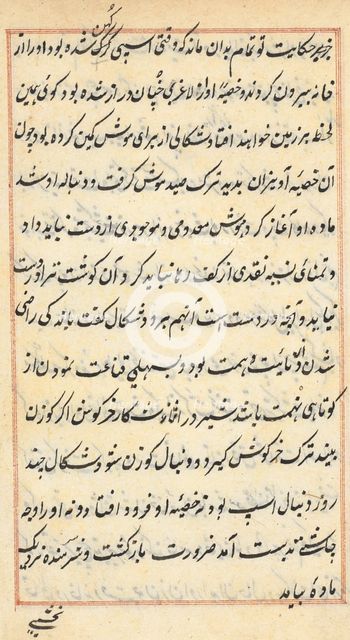 کهن
خریر حکایت تو تمام بدان ماند که وقتی اسپی گرگ شده بود او را از
خانه بیرون کردند و خصیهٔ او از لاغری چنان دراز شده بود گوئی همین
لحظه بر زمین خواهد افتاد شکالی از برای موش کمین کرده بود چون
آن خصیهٔ آویزان بدید ترک صید موش گرفت و دنبال او شد
ماده او آغاز کرد بهوش معدومی و موجودی از دست نباید داد
و تمنای نسیه نقدی از کف رها نباید کرد آن گوشت ترا درست
نیاید و آنچه در دست است آنهم برود شکال گفت باندکی راضی
شدن از دنائت همت بود و بسهلی قناعت نمودن از
کوتاهی نهمت باشد شیر در اثنای شکار خرگوش اگر گوزن
بیند ترک خرگوش گیرد و دنبال گوزن شود شکال چند
روز دنبال اسپ بود نه خصیهٔ او فرود افتاد و نه او را وجه
چاشتی بدست آمد ضرورت بازگشت و شرمنده نزدیک
ماده بیامد
نخشبی